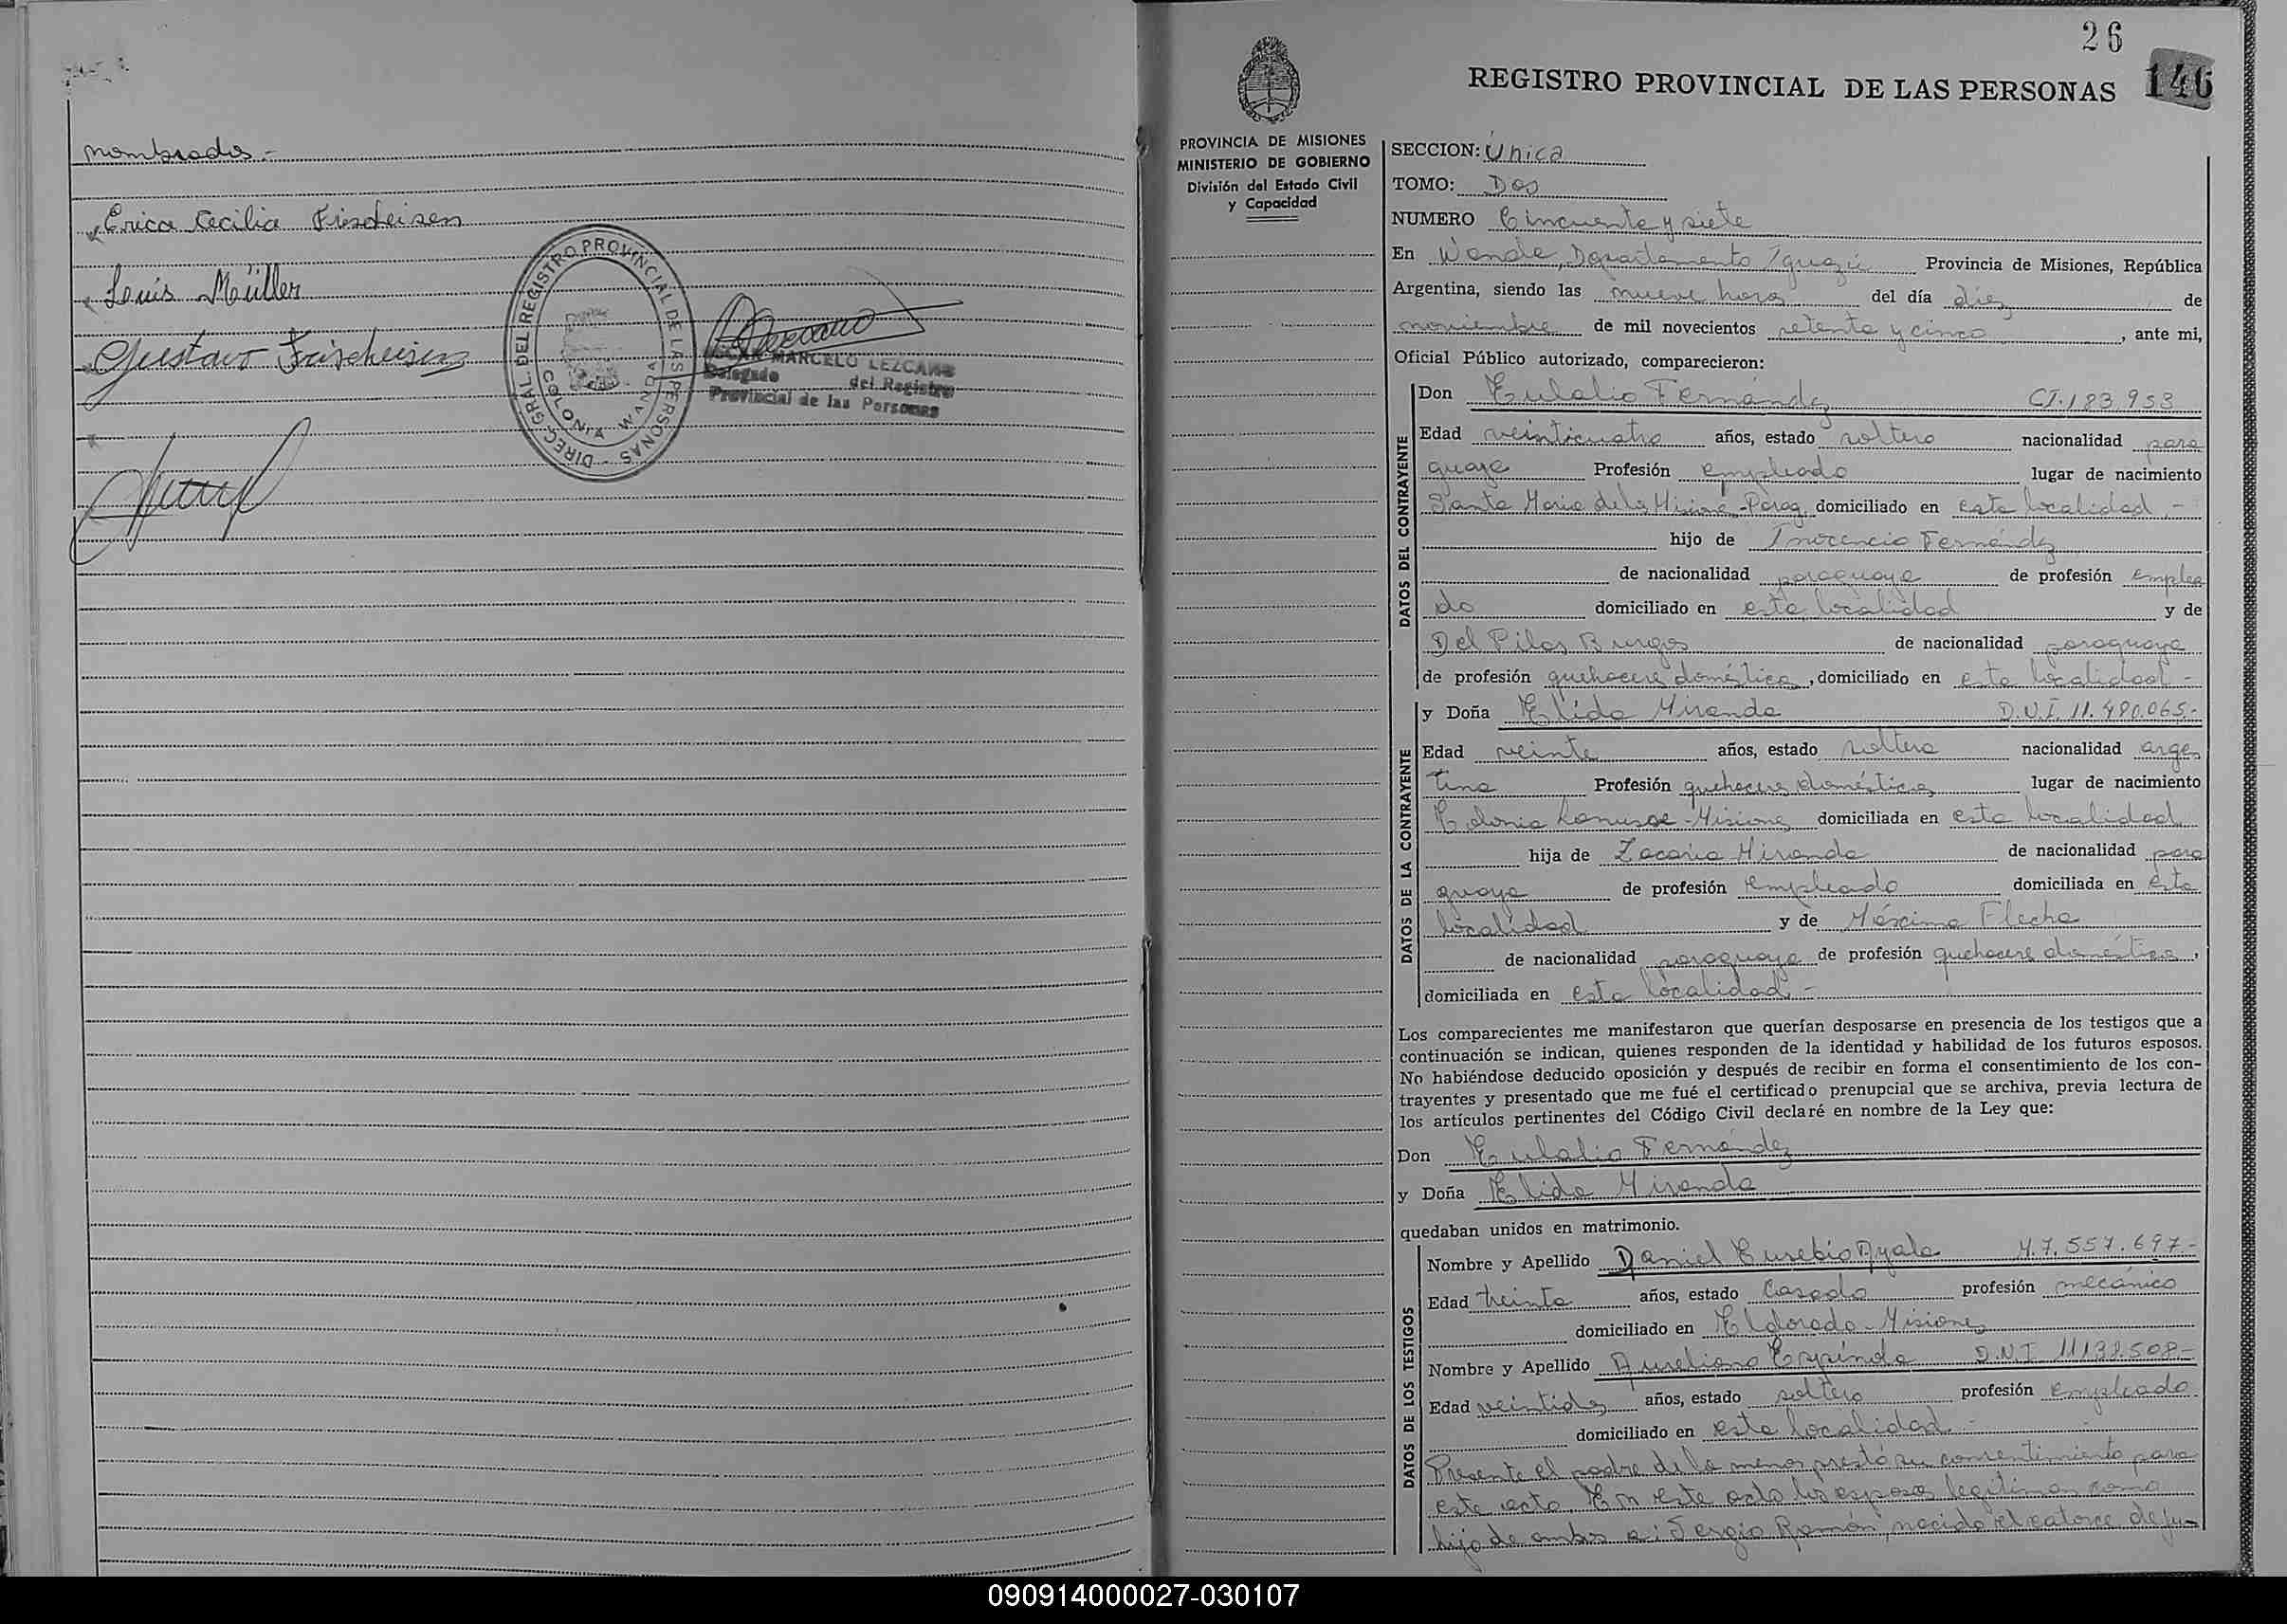 nombrados.-
Erica Cecilia Frischeisen
Luis Müller
Gustavo Frischeisen
DIREC. GRAL. DEL REGISTRO PROVINCIAL DE LAS PERSONAS
COLONIA WANDA
MARCELO LEZCANO
Delegado del Registro
Provincial de las Personas
26
REGISTRO PROVINCIAL DE LAS PERSONAS 146
PROVINCIA DE MISIONES
MINISTERIO DE GOBIERNO
División del Estado Civil
y Capacidad
SECCION: Unica
TOMO: Dos
NUMERO Cincuenta y siete
En Wanda, Departamento Iguazú Provincia de Misiones, República
Argentina, siendo las nueve horas del día diez de
noviembre de mil novecientos setenta y cinco, ante mi,
Oficial Público autorizado, comparecieron:
DATOS DEL CONTRAYENTE
Don Eulalio Fernández CI. 183.953
Edad veinticuatro años, estado soltero nacionalidad para
guaya Profesión empleado lugar de nacimiento
Santa Maria de las Misiones-Parag. domiciliado en esta localidad.-
hijo de Inocencio Fernández
de nacionalidad paraguaya de profesión emplea
do domiciliado en esta localidad y de
Del Pilar Burgos de nacionalidad paraguaya
de profesión quehaceres domésticos, domiciliado en esta localidad-
DATOS DE LA CONTRAYENTE
y Doña Elida Miranda D.N.I. 11.480.065.-
Edad veinte años, estado soltera nacionalidad argen
tina Profesión quehaceres domésticos lugar de nacimiento
Colonia Lanusse-Misiones domiciliada en esta localidad
hija de Zacarias Miranda de nacionalidad para
guaya de profesión empleado domiciliada en esta
localidad y de Máxima Flecha
de nacionalidad paraguaya de profesión quehaceres domésticos,
domiciliada en esta localidad.-
Los comparecientes me manifestaron que querían desposarse en presencia de los testigos que a
continuación se indican, quienes responden de la identidad y habilidad de los futuros esposos.
No habiéndose deducido oposición y después de recibir en forma el consentimiento de los con-
trayentes y presentado que me fué el certificado prenupcial que se archiva, previa lectura de
los artículos pertinentes del Código Civil declaré en nombre de la Ley que:
Don Eulalio Fernández
y Doña Elida Miranda
quedaban unidos en matrimonio.
DATOS DE LOS TESTIGOS
Nombre y Apellido Daniel Eusebio Ayala M.7.557.697.-
Edad treinta años, estado casado profesión mecánico
domiciliado en Eldorado-Misiones
Nombre y Apellido Aureliano Espíndola D.N.I 11.198.508.-
Edad veintidos años, estado soltero profesión empleado
domiciliado en esta localidad.-
Presente el padre de la menor prestó su consentimiento para
este acto. En este acto los esposos legitiman como
hijo de ambos a: Sergio Ramón, nacido el catorce de ju-
090914000027-030107